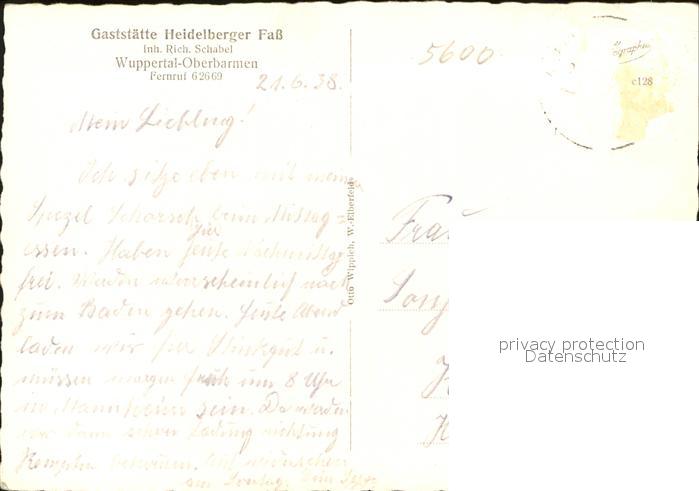 Gaststätte Heidelberger Faß
Inh. Rich. Schabel
Wuppertal-Oberbarmen
Fernruf 62669
21.6.38.
Mein Liebling!
Ich sitze eben mit meinem
Spezel Schorsch beim Mittag =
essen. Haben hier heute Nachmittag
frei. Werden wahrscheinlich nach
zum Baden gehen. Heute Abend
laden wir hier Stückgut u.
müssen morgen früh um 8 Uhr
in Mannheim sein. Da werden
wir dann schon Ladung richtung
Kempten bekommen. Auf wiedersehen
am Sonntag. Dein
Otto Wippich, W.-Elberfeld
5600
c128
Frau
privacy protection
Datenschutz